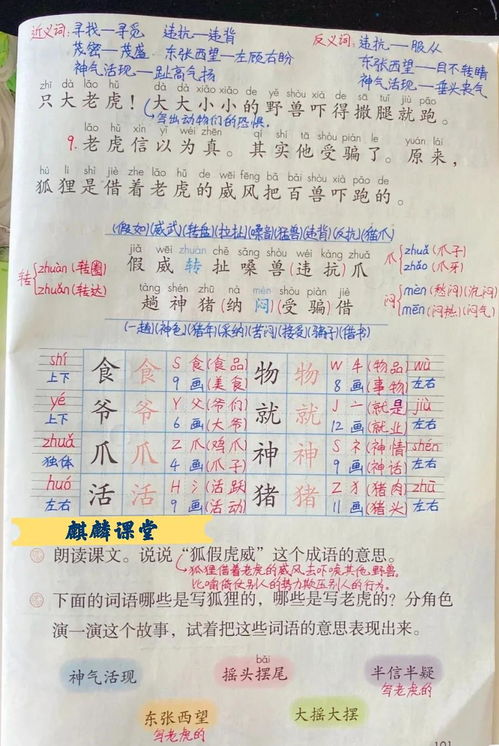 近义词:寻找—寻觅 违抗—违背
茂密—茂盛 东张西望—左顾右盼
神气活现—趾高气扬
反义词:违抗—服从
东张西望—目不转睛
神气活现—垂头丧气
zhī dà lǎo hǔ dà dà xiǎo xiǎo de yě shòu xià de sā tuǐ jiù pǎo
只大老虎!大大小小的野兽吓得撒腿就跑。
写出动物们的恐惧
lǎo hǔ xìn yǐ wéi zhēn qí shí tā shòu piàn le yuán lái
9.老虎信以为真。其实他受骗了。原来,
hú li shì jiè zhe lǎo hǔ de wēi fēng bǎ bǎi shòu xià pǎo de
狐狸是借着老虎的威风把百兽吓跑的。
(假如)(威武)(转盘)(拉扯)(嗓音)(猛兽)(违背)(反抗)(猫爪)
jiǎ wēi zhuàn chě sǎng shòu wéi kàng zhuǎ
假威转扯嗓兽(违抗)爪
转 zhuàn(转圈)
zhuǎn(转达)
爪 zhuǎ(爪子)
zhǎo(爪牙)
tàng shén zhū nà mèn shòu piàn jiè
趟神猪(纳闷)(受骗)借
闷 mèn(愁闷)(沉闷)
mēn(闷热)(闷气)
(一趟)(神色)(猪年)(采纳)(苦闷)(接受)(骗子)(借书)
shí 食 食 S 食(食品 物 物 W 牜(物品) wù
上下 9画(美食 8画(事物) 左右
yé 爷 爷 Y 父(爷们 就 就 J 亠(就是 jiù
上下 6画(大爷 12画(就业) 左右
zhuǎ 爪 爪 Z 爪(鸡爪 神 神 S 礻(神情 shén
独体 4画(爪子 9画(神话) 左右
huó 活 活 H 氵(活跃 猪 猪 Z 犭(猪肉 zhū
左右 9画(活动 11画(猪头) 左右
麒麟课堂
朗读课文。说说“狐假虎威”这个成语的意思。
狐狸借着老虎的威风去吓唬其他野兽。
比喻倚仗别人的势力欺压别人的行为。
下面的词语哪些是写狐狸的,哪些是写老虎的?分角色
演一演这个故事,试着把这些词语的意思表现出来。
bǎi
神气活现 摇头摆尾 半信半疑
写老虎的
东张西望 大摇大摆
写老虎的
101